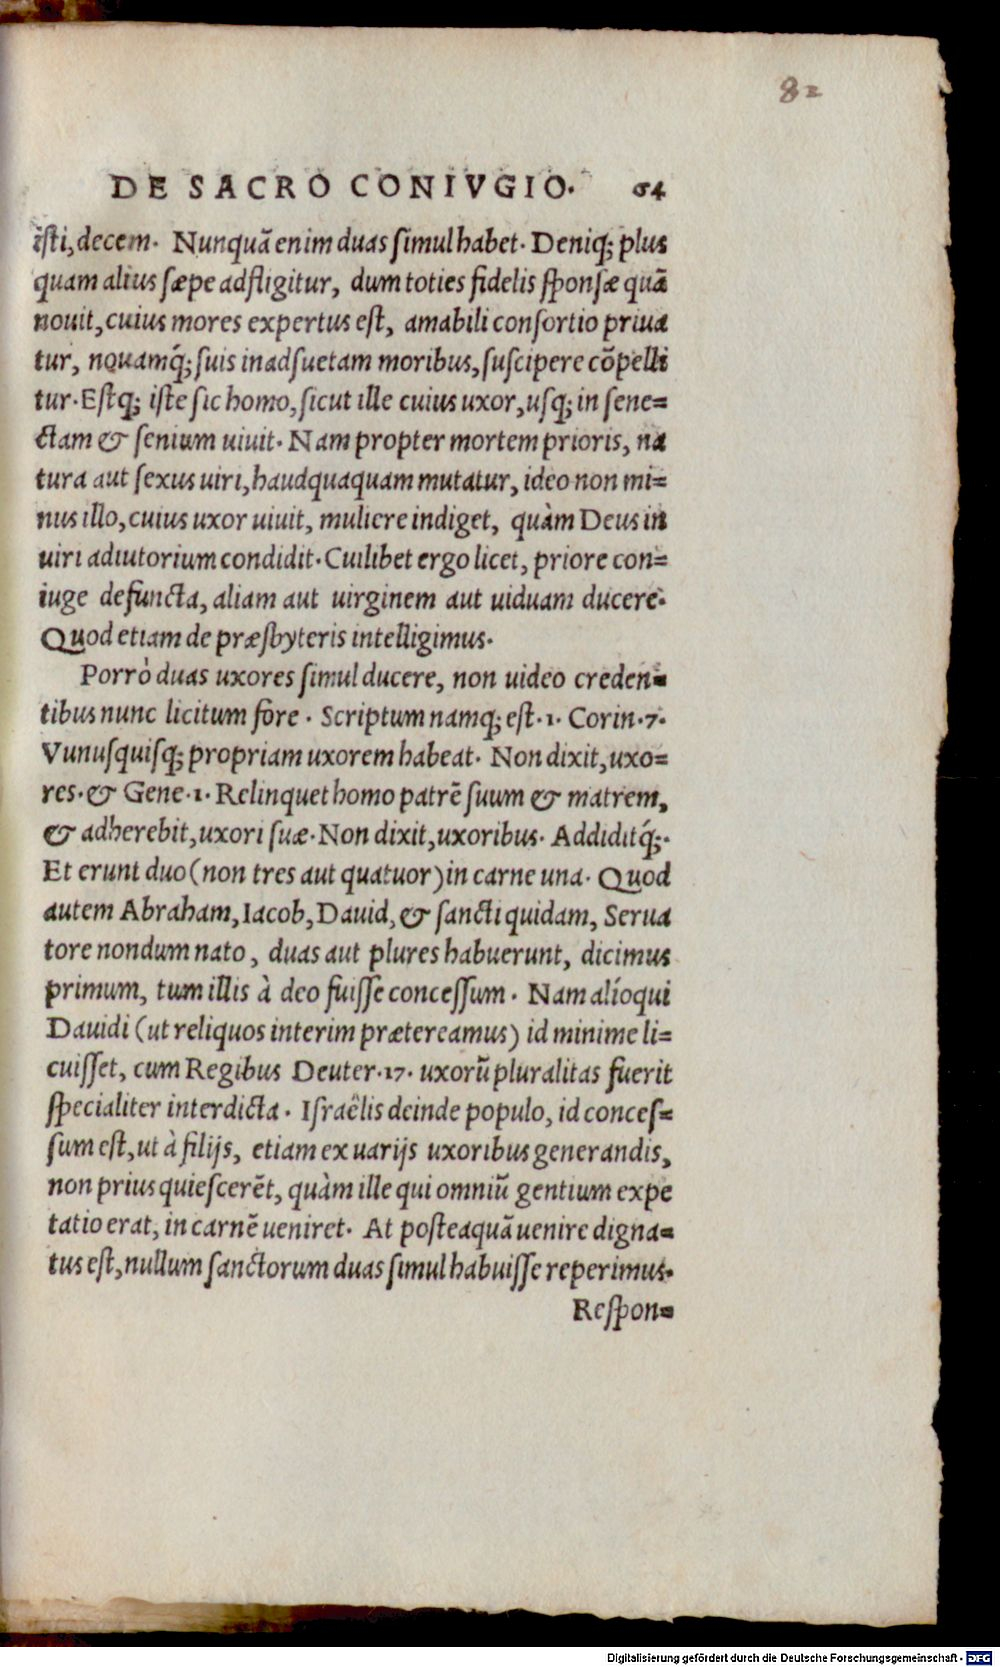 82
DE SACRO CONIVGIO. 64
isti, decem. Nunquã enim duas simul habet. Deniq; plus
quam alius sæpe adfligitur, dum toties fidelis sponsæ quã
nouit, cuius mores expertus est, amabili consortio priua
tur, nouamq́; suis inadsuetam moribus, suscipere cõpelli
tur. Estq; iste sic homo, sicut ille cuius uxor, usq; in sene=
ctam & senium uiuit. Nam propter mortem prioris, na
tura aut sexus uiri, haudquaquam mutatur, ideo non mi=
nus illo, cuius uxor uiuit, muliere indiget, quàm Deus in
uiri adiutorium condidit. Cuilibet ergo licet, priore con=
iuge defuncta, aliam aut uirginem aut uiduam ducere.
Quod etiam de præsbyteris intelligimus.
Porrò duas uxores simul ducere, non uideo creden=
tibus nunc licitum fore. Scriptum namq; est. 1. Corin. 7.
Vunusquisq; propriam uxorem habeat. Non dixit, uxo=
res. & Gene. 1. Relinquet homo patrẽ suum & matrem,
& adherebit, uxori suæ. Non dixit, uxoribus. Addiditq́;.
Et erunt duo (non tres aut quatuor) in carne una. Quod
autem Abraham, Iacob, Dauid, & sancti quidam, Serua
tore nondum nato, duas aut plures habuerunt, dicimus
primum, tum illis à deo fuisse concessum. Nam alíoqui
Dauidi (ut reliquos interim prætereamus) id minime li=
cuisset, cum Regibus Deuter. 17. uxorũ pluralitas fuerit
specialiter interdicta. Israêlis deinde populo, id conces=
sum est, ut à filijs, etiam ex uarijs uxoribus generandis,
non prius quiescerẽt, quàm ille qui omniũ gentium expe
tatio erat, in carnẽ ueniret. At posteaquã uenire digna=
tus est, nullum sanctorum duas simul habuisse reperimus.
Respon=
Digitalisierung gefördert durch die Deutsche Forschungsgemeinschaft - DFG